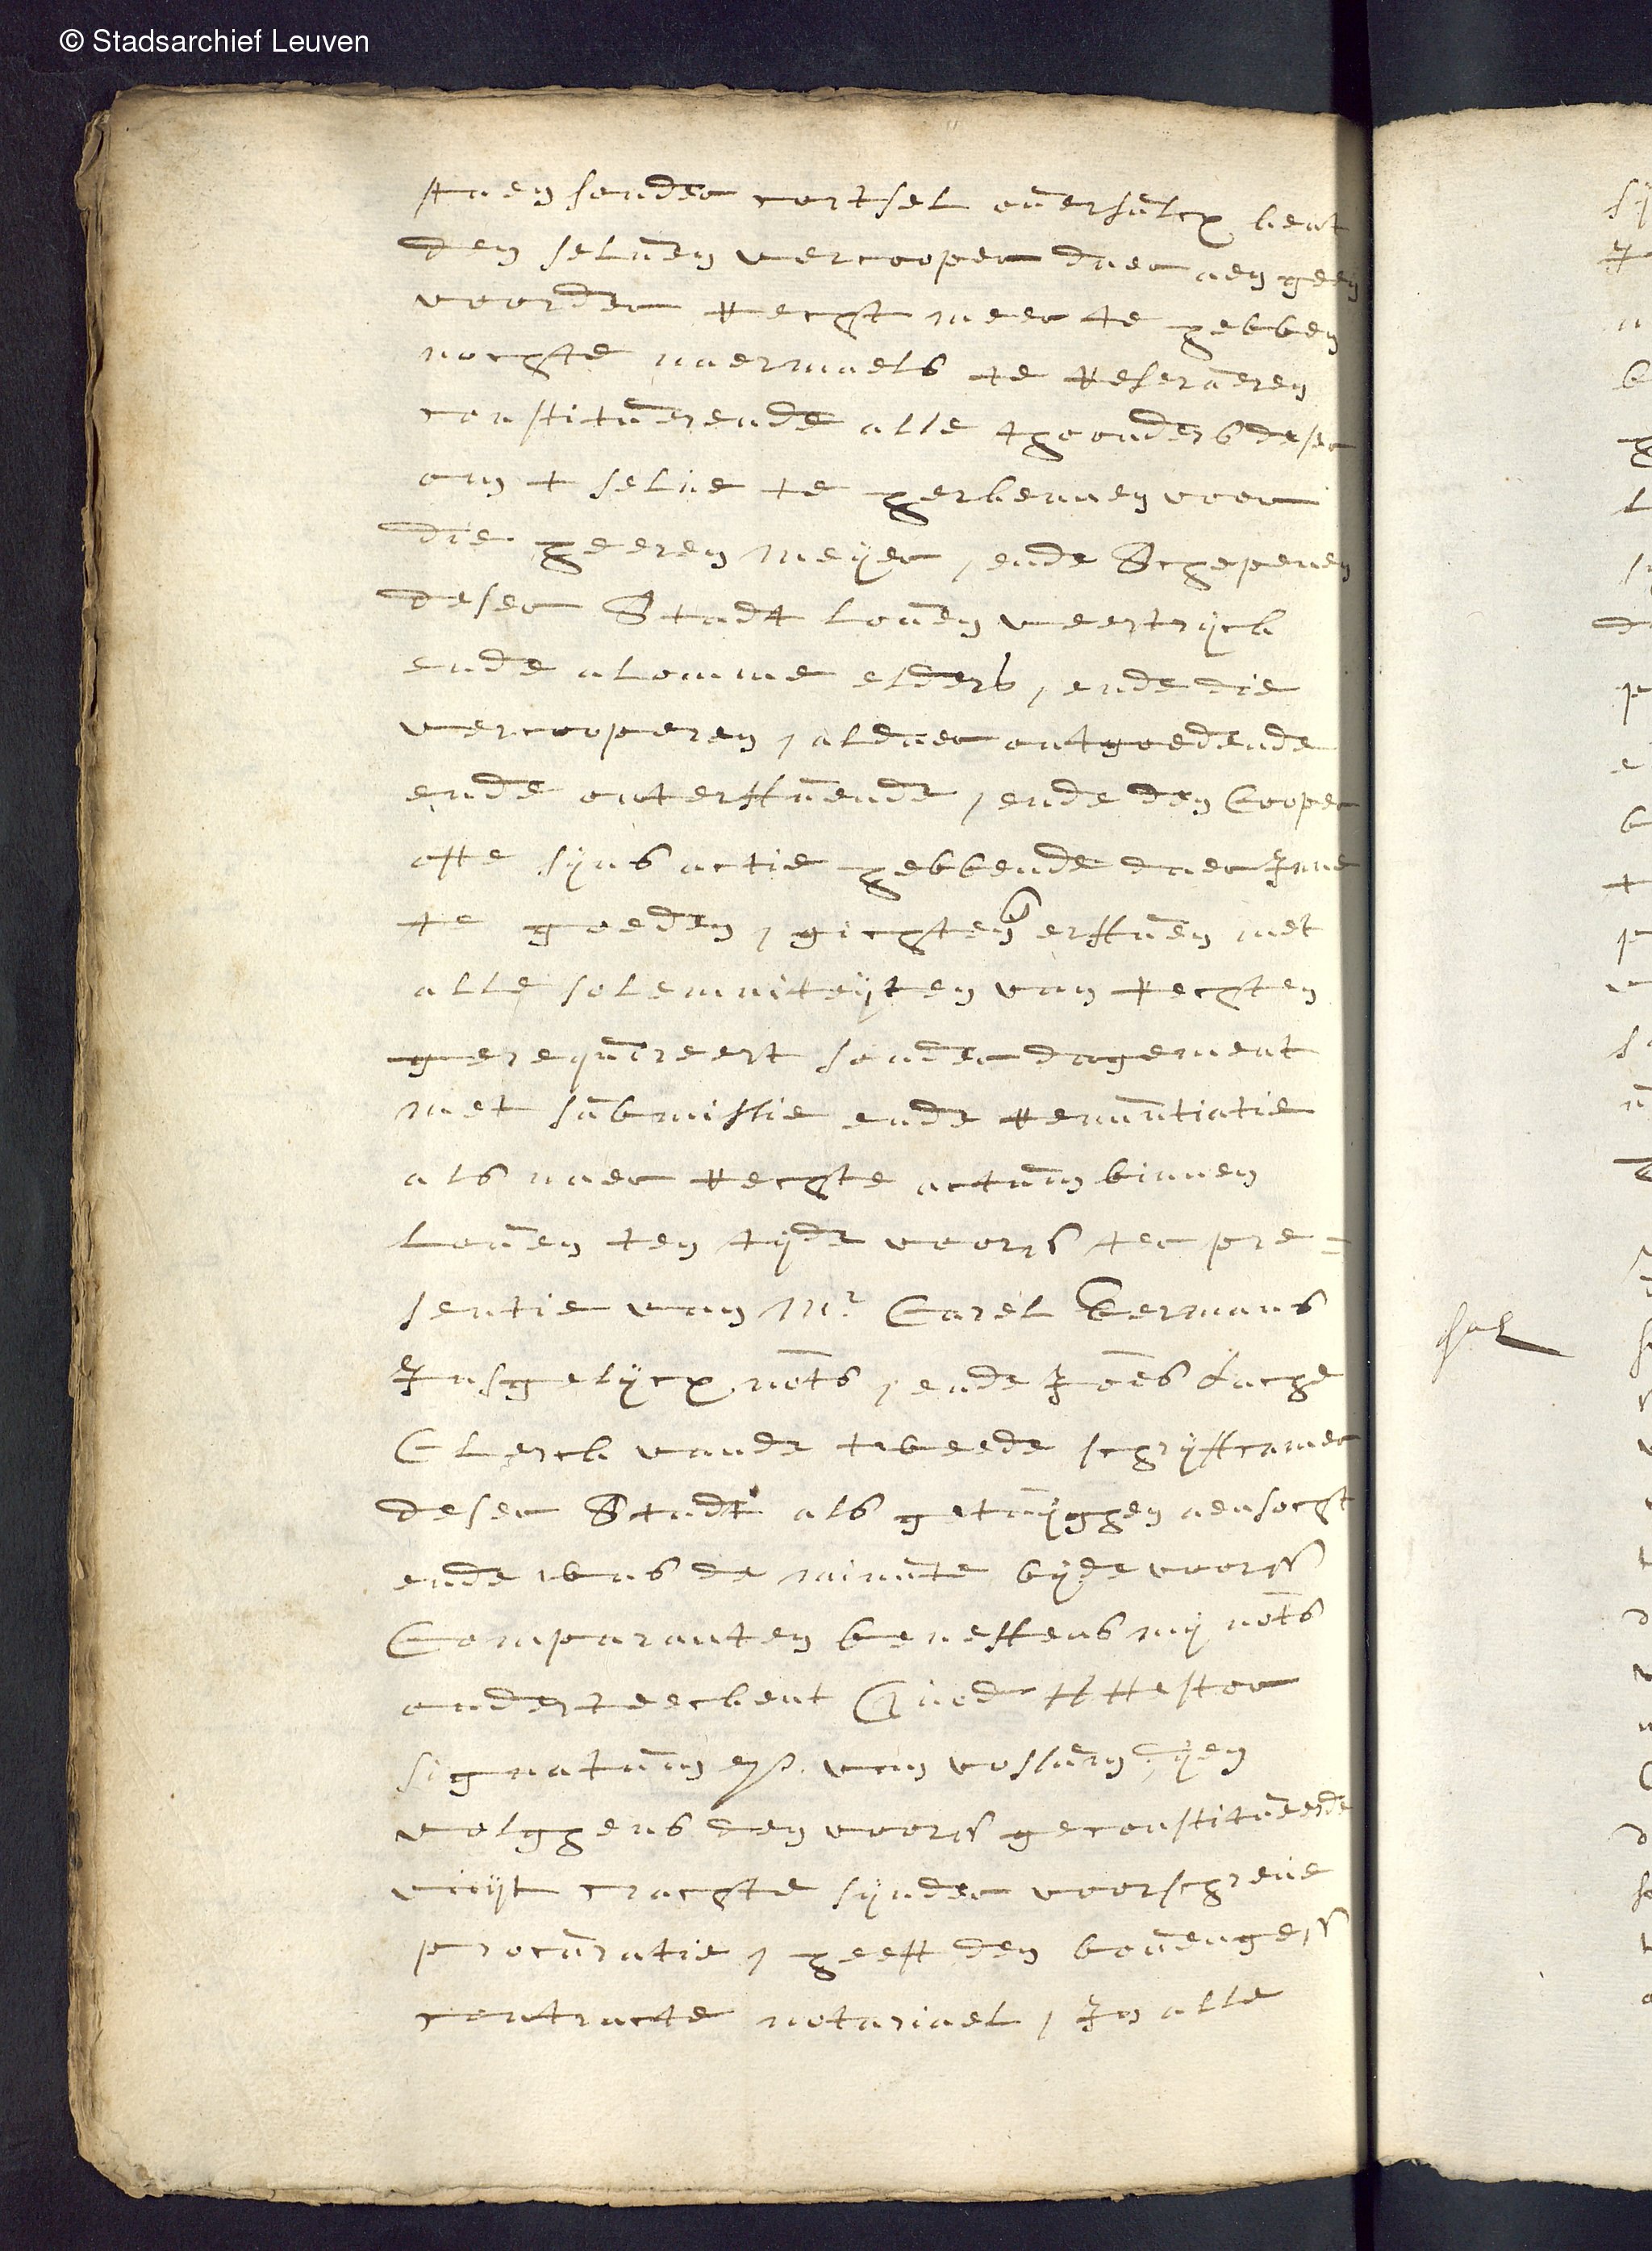 © Stadsarchief Leuven
staen sonder cortsel oversulcx kent
den selven vercooper daer aen geen
voorder recht meer te hebben
nochte naermaels te reserveren
constituerende alle thoonders deser
om t selve te herkennen voor
die heeren meyer, ende Schepenen
deser Stadt Loven veertrijck
ende alomme elders, ende die
vercooperen, aldaer ontgoedende
ende onterffvende, ende den Cooper
ofte sijns actie hebbende daer Inne
te goeden, gichten erffven met
alle solemniteijten van rechten
gerequireert sonder dagement
met submissie ende renuntiatie
als naer rechte actum binnen
Loven ten tijde voors ter pre=
sentie van Mr. Carel Kermans
Insgelijcx nots, ende Joes
Clerck vande tweede schrijffcamer
deser Stadt als getuijghen aensocht
ende was de minute bijde voors
Comparanten beneffens mij nots
onderteeckent Quod Attestor
signatum van vossum, Dijen
volghens den voors geconstitueerde
vuijt crachte sijnder voorschreve
procuratie, heeft den bovenges
contracte notariael, In alle